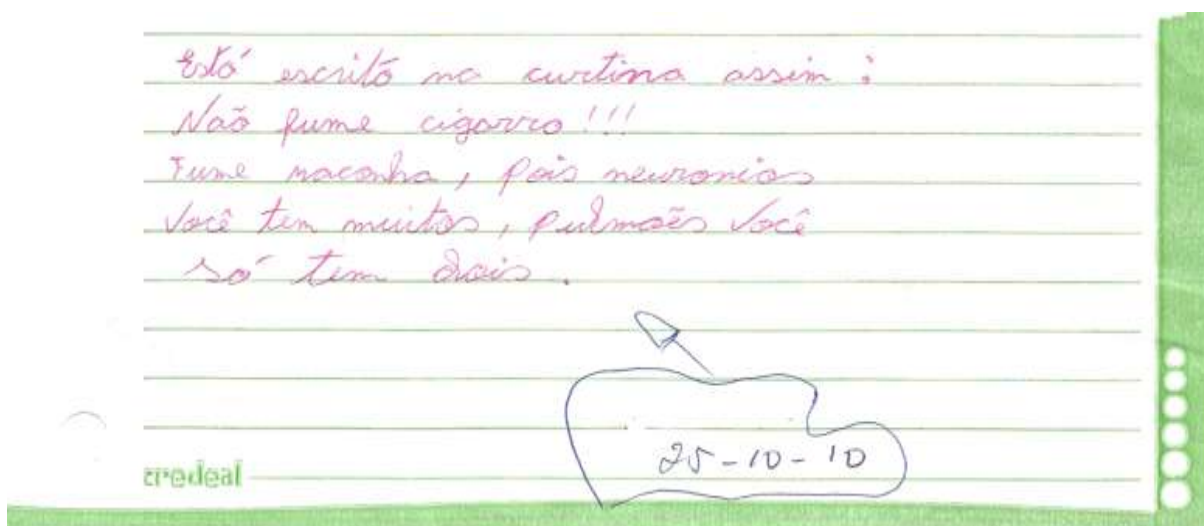 Está escrito na curtina assim :
Não fume cigarro !!!
Fume maconha, pois neuronios
Você tem muitos, pulmões Você
só tem dois.
25-10-10
credeal